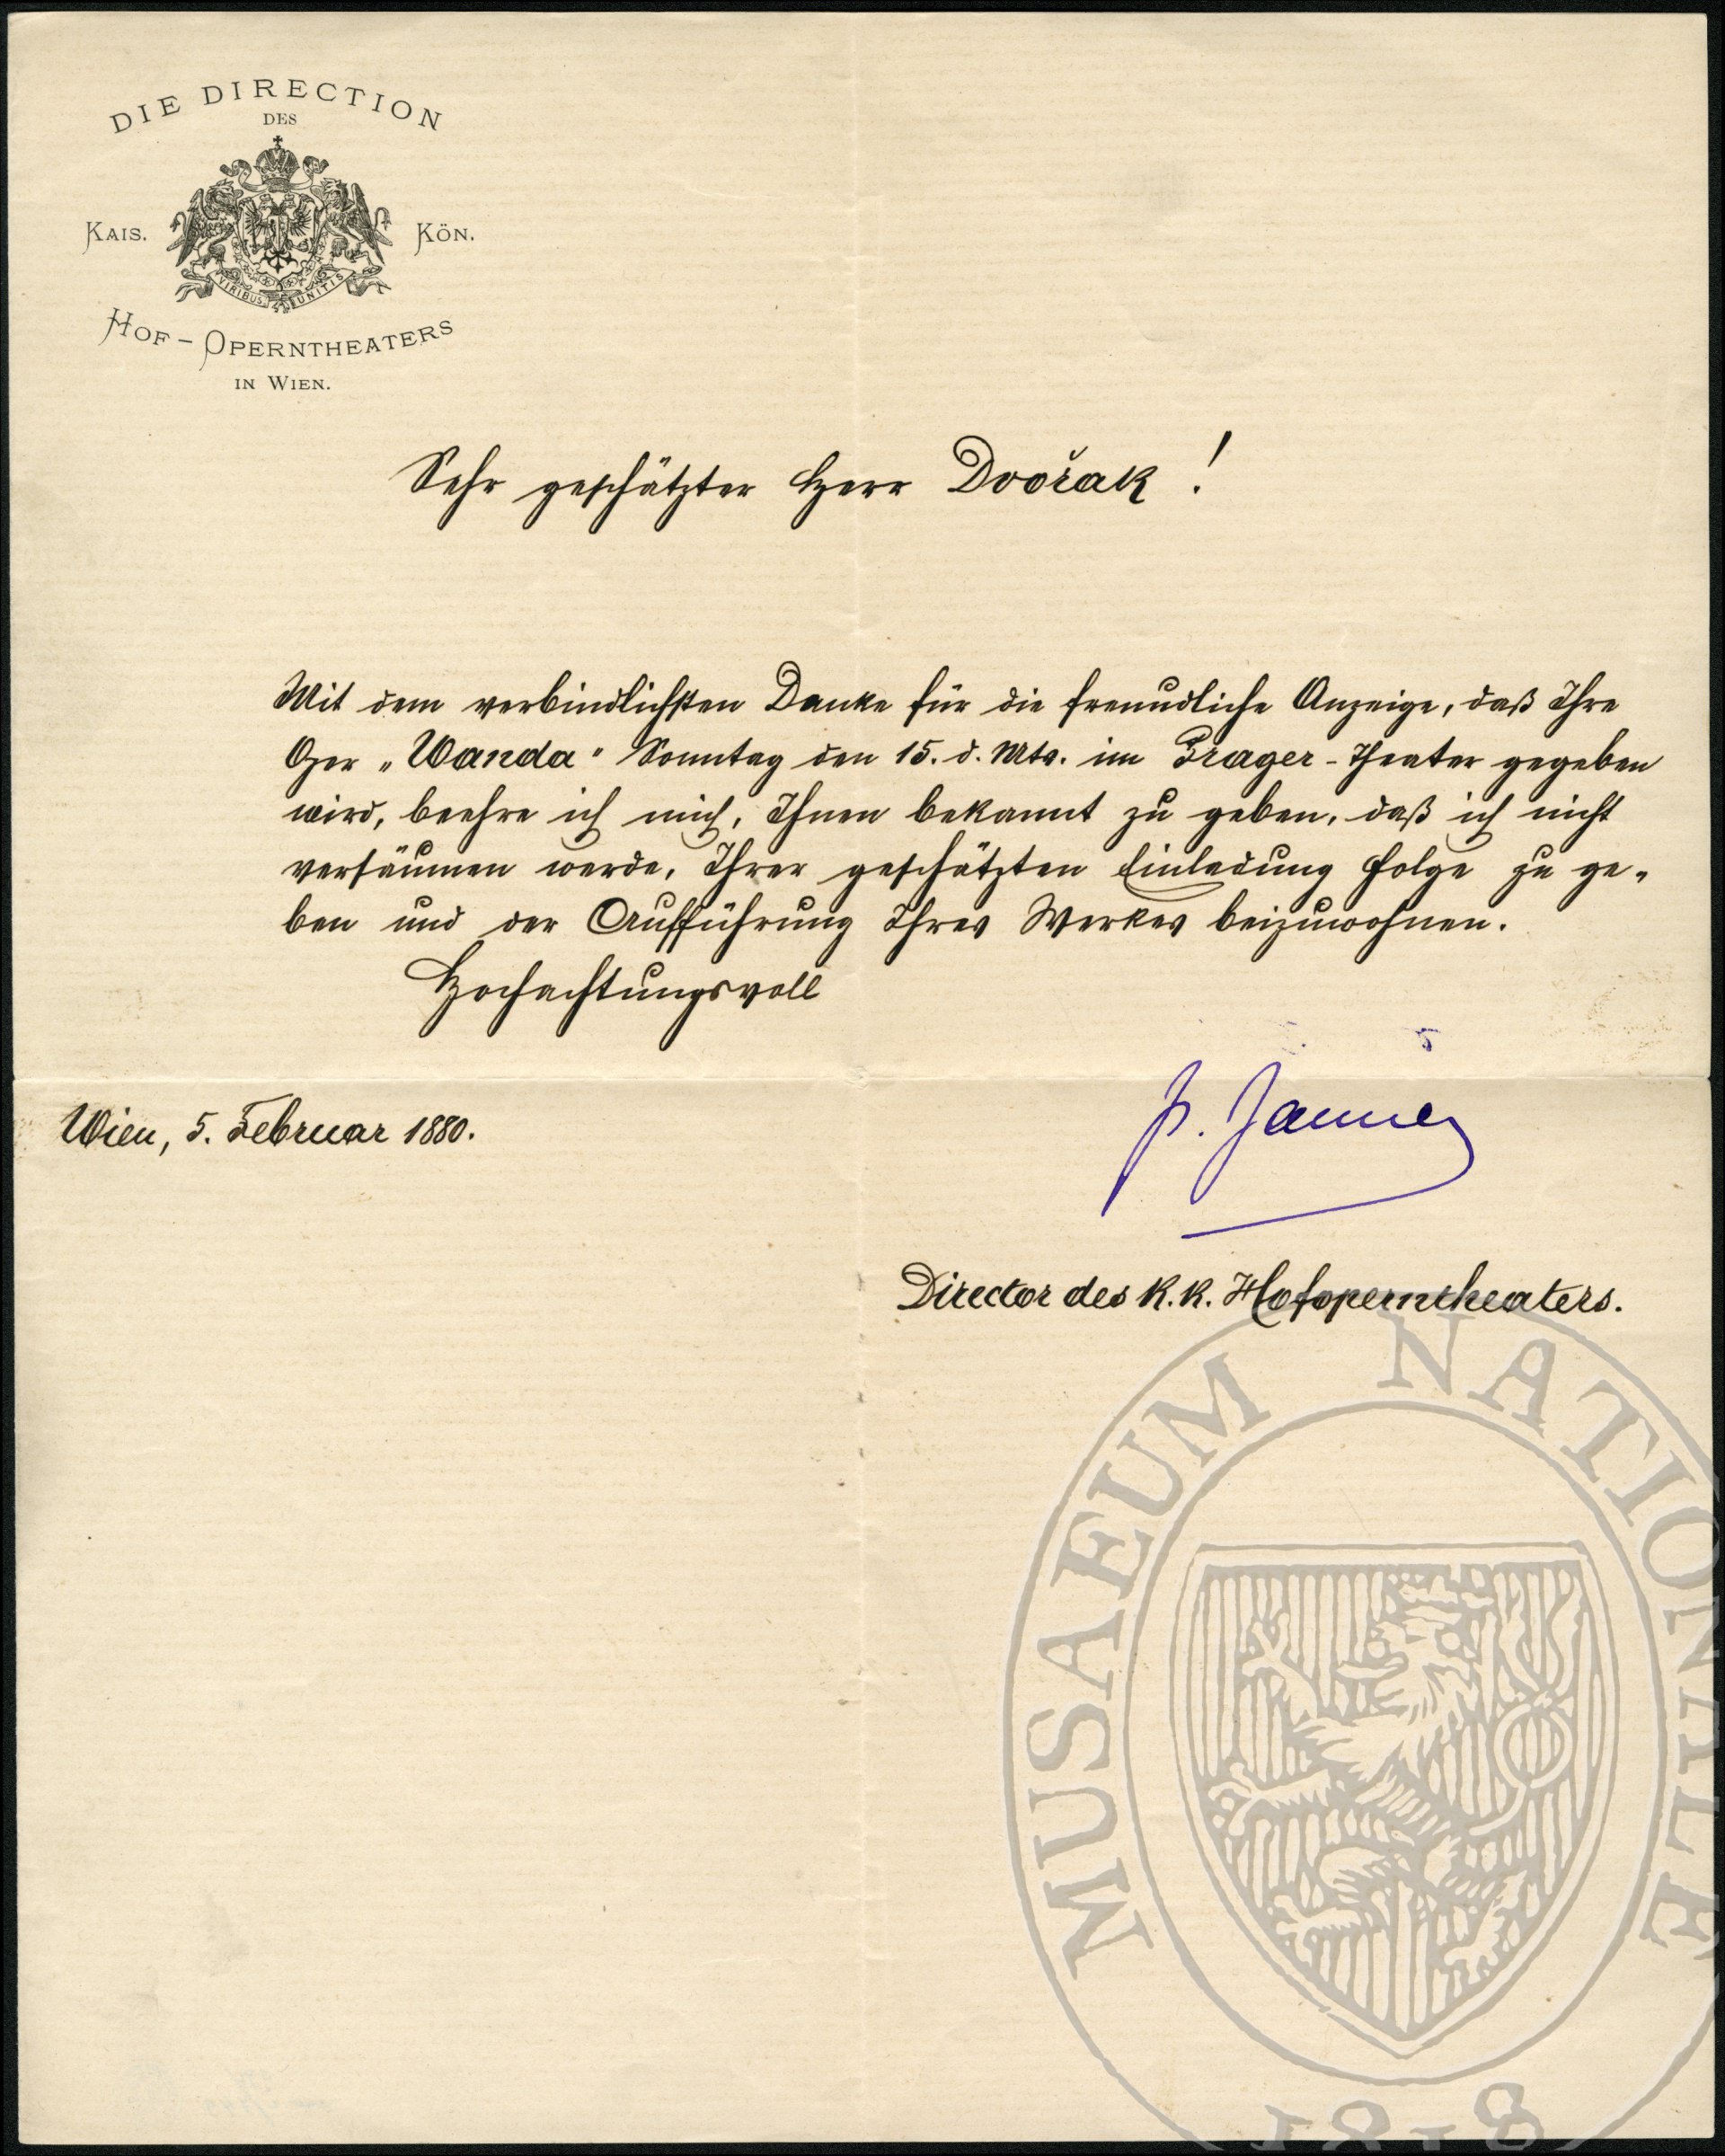 DIE DIRECTION
DES
KAIS. KÖN.
VIRIBUS UNITIS
HOF-OPERNTHEATERS
IN WIEN.
Sehr geschätzter Herr Dvořak!
Mit dem verbindlichsten Danke für die freundliche Anzeige, daß Ihre
Oper „Wanda" Sonntag den 15. d. Mts. im Prager-Theater gegeben
wird, beehre ich mich, Ihnen bekannt zu geben, daß ich nicht
versäumen werde, Ihrer geschätzten Einladung Folge zu ge-
ben und der Aufführung Ihres Werkes beizuwohnen.
Hochachtungsvoll
Wien, 5. Februar 1880.
Jauner
Director des k.k. Hofoperntheaters.
MUSAEUM NATIONALE
1818